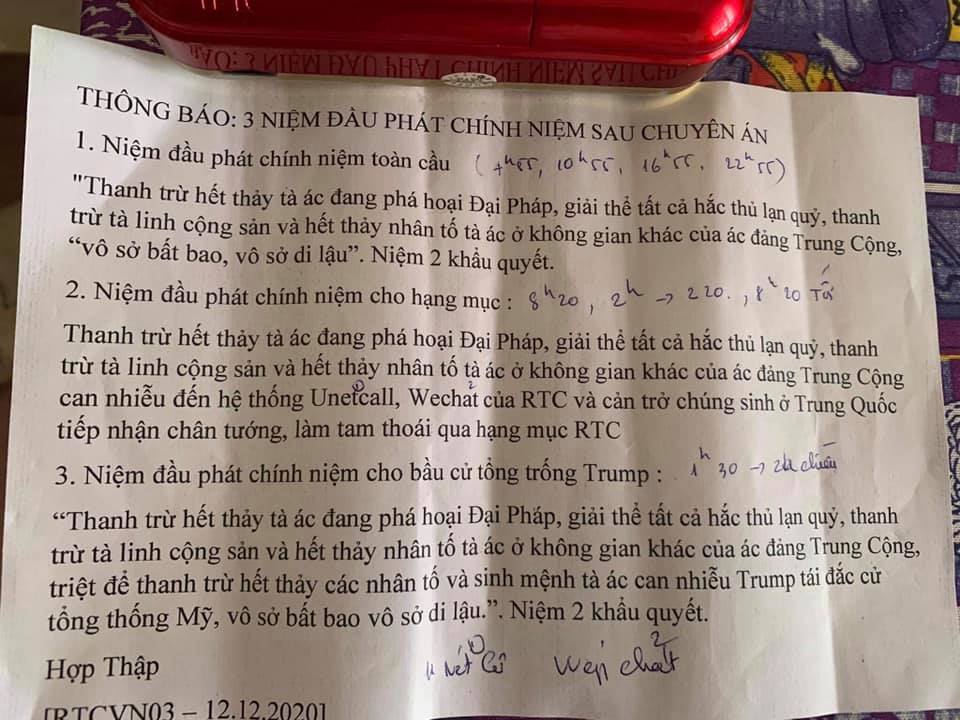 THÔNG BÁO: 3 NIỆM ĐẦU PHÁT CHÍNH NIỆM SAU CHUYÊN ÁN
1. Niệm đầu phát chính niệm toàn cầu ( 4h55, 10h55, 16h55, 22h55)
"Thanh trừ hết thảy tà ác đang phá hoại Đại Pháp, giải thể tất cả hắc thủ lạn quỷ, thanh
trừ tà linh cộng sản và hết thảy nhân tố tà ác ở không gian khác của ác đảng Trung Cộng,
“vô sở bất bao, vô sở di lậu”. Niệm 2 khẩu quyết.
2. Niệm đầu phát chính niệm cho hạng mục : 8h20, 2h → 220., 8h20 Tối
Thanh trừ hết thảy tà ác đang phá hoại Đại Pháp, giải thể tất cả hắc thủ lạn quỷ, thanh
trừ tà linh cộng sản và hết thảy nhân tố tà ác ở không gian khác của ác đảng Trung Cộng
can nhiễu đến hệ thống Unetcall, Wechat của RTC và cản trở chúng sinh ở Trung Quốc
tiếp nhận chân tướng, làm tam thoái qua hạng mục RTC
3. Niệm đầu phát chính niệm cho bầu cử tổng trống Trump : 1h30 → 2h chiều
“Thanh trừ hết thảy tà ác đang phá hoại Đại Pháp, giải thể tất cả hắc thủ lạn quỷ, thanh
trừ tà linh cộng sản và hết thảy nhân tố tà ác ở không gian khác của ác đảng Trung Cộng,
triệt để thanh trừ hết thảy các nhân tố và sinh mệnh tà ác can nhiễu Trump tái đắc cử
tổng thống Mỹ, vô sở bất bao vô sở di lậu.”. Niệm 2 khẩu quyết.
Hợp Thập
[RTCVN03 – 12.12.2020]